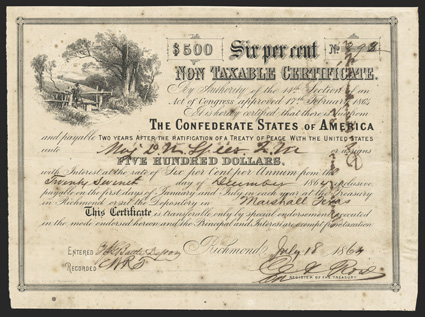 $500 Six per cent No 398
NON TAXABLE CERTIFICATE.
By Authority of the 14th Section of an
Act of Congress approved 17th February 1864
It is hereby certified that there is due from
THE CONFEDERATE STATES OF AMERICA
and payable TWO YEARS AFTER THE RATIFICATION OF A TREATY OF PEACE WITH THE UNITED STATES
unto Maj. or assigns
FIVE HUNDRED DOLLARS,
with Interest at the rate of Six per Cent per Annum from the
Twenty Seventh day of December 186 inclusive
payable on the first days of January and July in each year at the Treasury
in Richmond or at the Depository in Marshall Texas
This Certificate is transferable only by special endorsement executed
in the mode endorsed hereon and the Principal and Interest are exempt from taxation
ENTERED Richmond, July 18 1864
RECORDED
REGISTER OF THE TREASURY